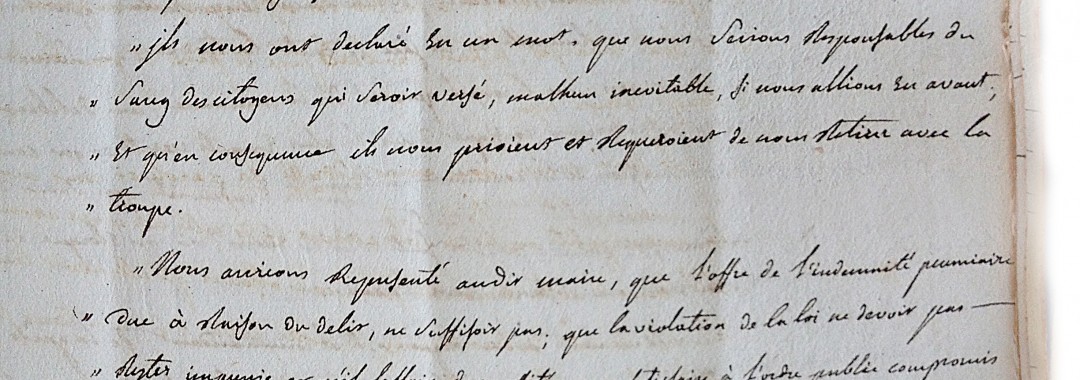 " jls nous ont declaré En un mot, que nous serions Responsables du
" Sang des citoyens qui seroit versé, malheur inevitable, si nous allions En avant;
" Et qu'en consequence ils nous prioient et Requeroient de nous Retirer avec la
" troupe.
" Nous avions Représenté audit maire, que l'offre de l'indemnité pecuniaire
" due à Raison du delit, ne suffisoit pas; que la violation de la loi ne devoit pas —
" Rester impunie à l'ordre public compromis